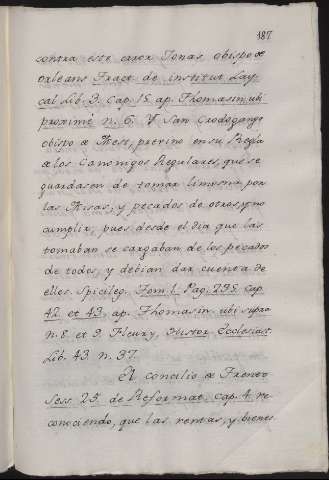 187
contra este error Jonas obispo de
Orleans Tract. de institut Lay-
cal Lib. 2. Cap. 15. ap. Thomasin ubi
proximé n. 6. Y San Crodogango
obispo de Mest, previno en su Regla
de los Canonigos Regulares, que se
guardasen de tomar limosna por
las Misas, y pecados de otros, y no
cumplir, pues desde el dia que las
tomaban se cargaban de los pecados
de todos, y debian dar cuenta de
ellos. Spicileg. Tom. 1. Pag. 238 Cap.
42. et 43. ap. Thomasin. ubi supra
n. 8. et 9. Fleury, Histor. Ecclesiast.
Lib. 43. n. 37.
El concilio de Trento
Sess. 25. de Reformat. Cap. 4. re-
conociendo, que las rentas, y bienes